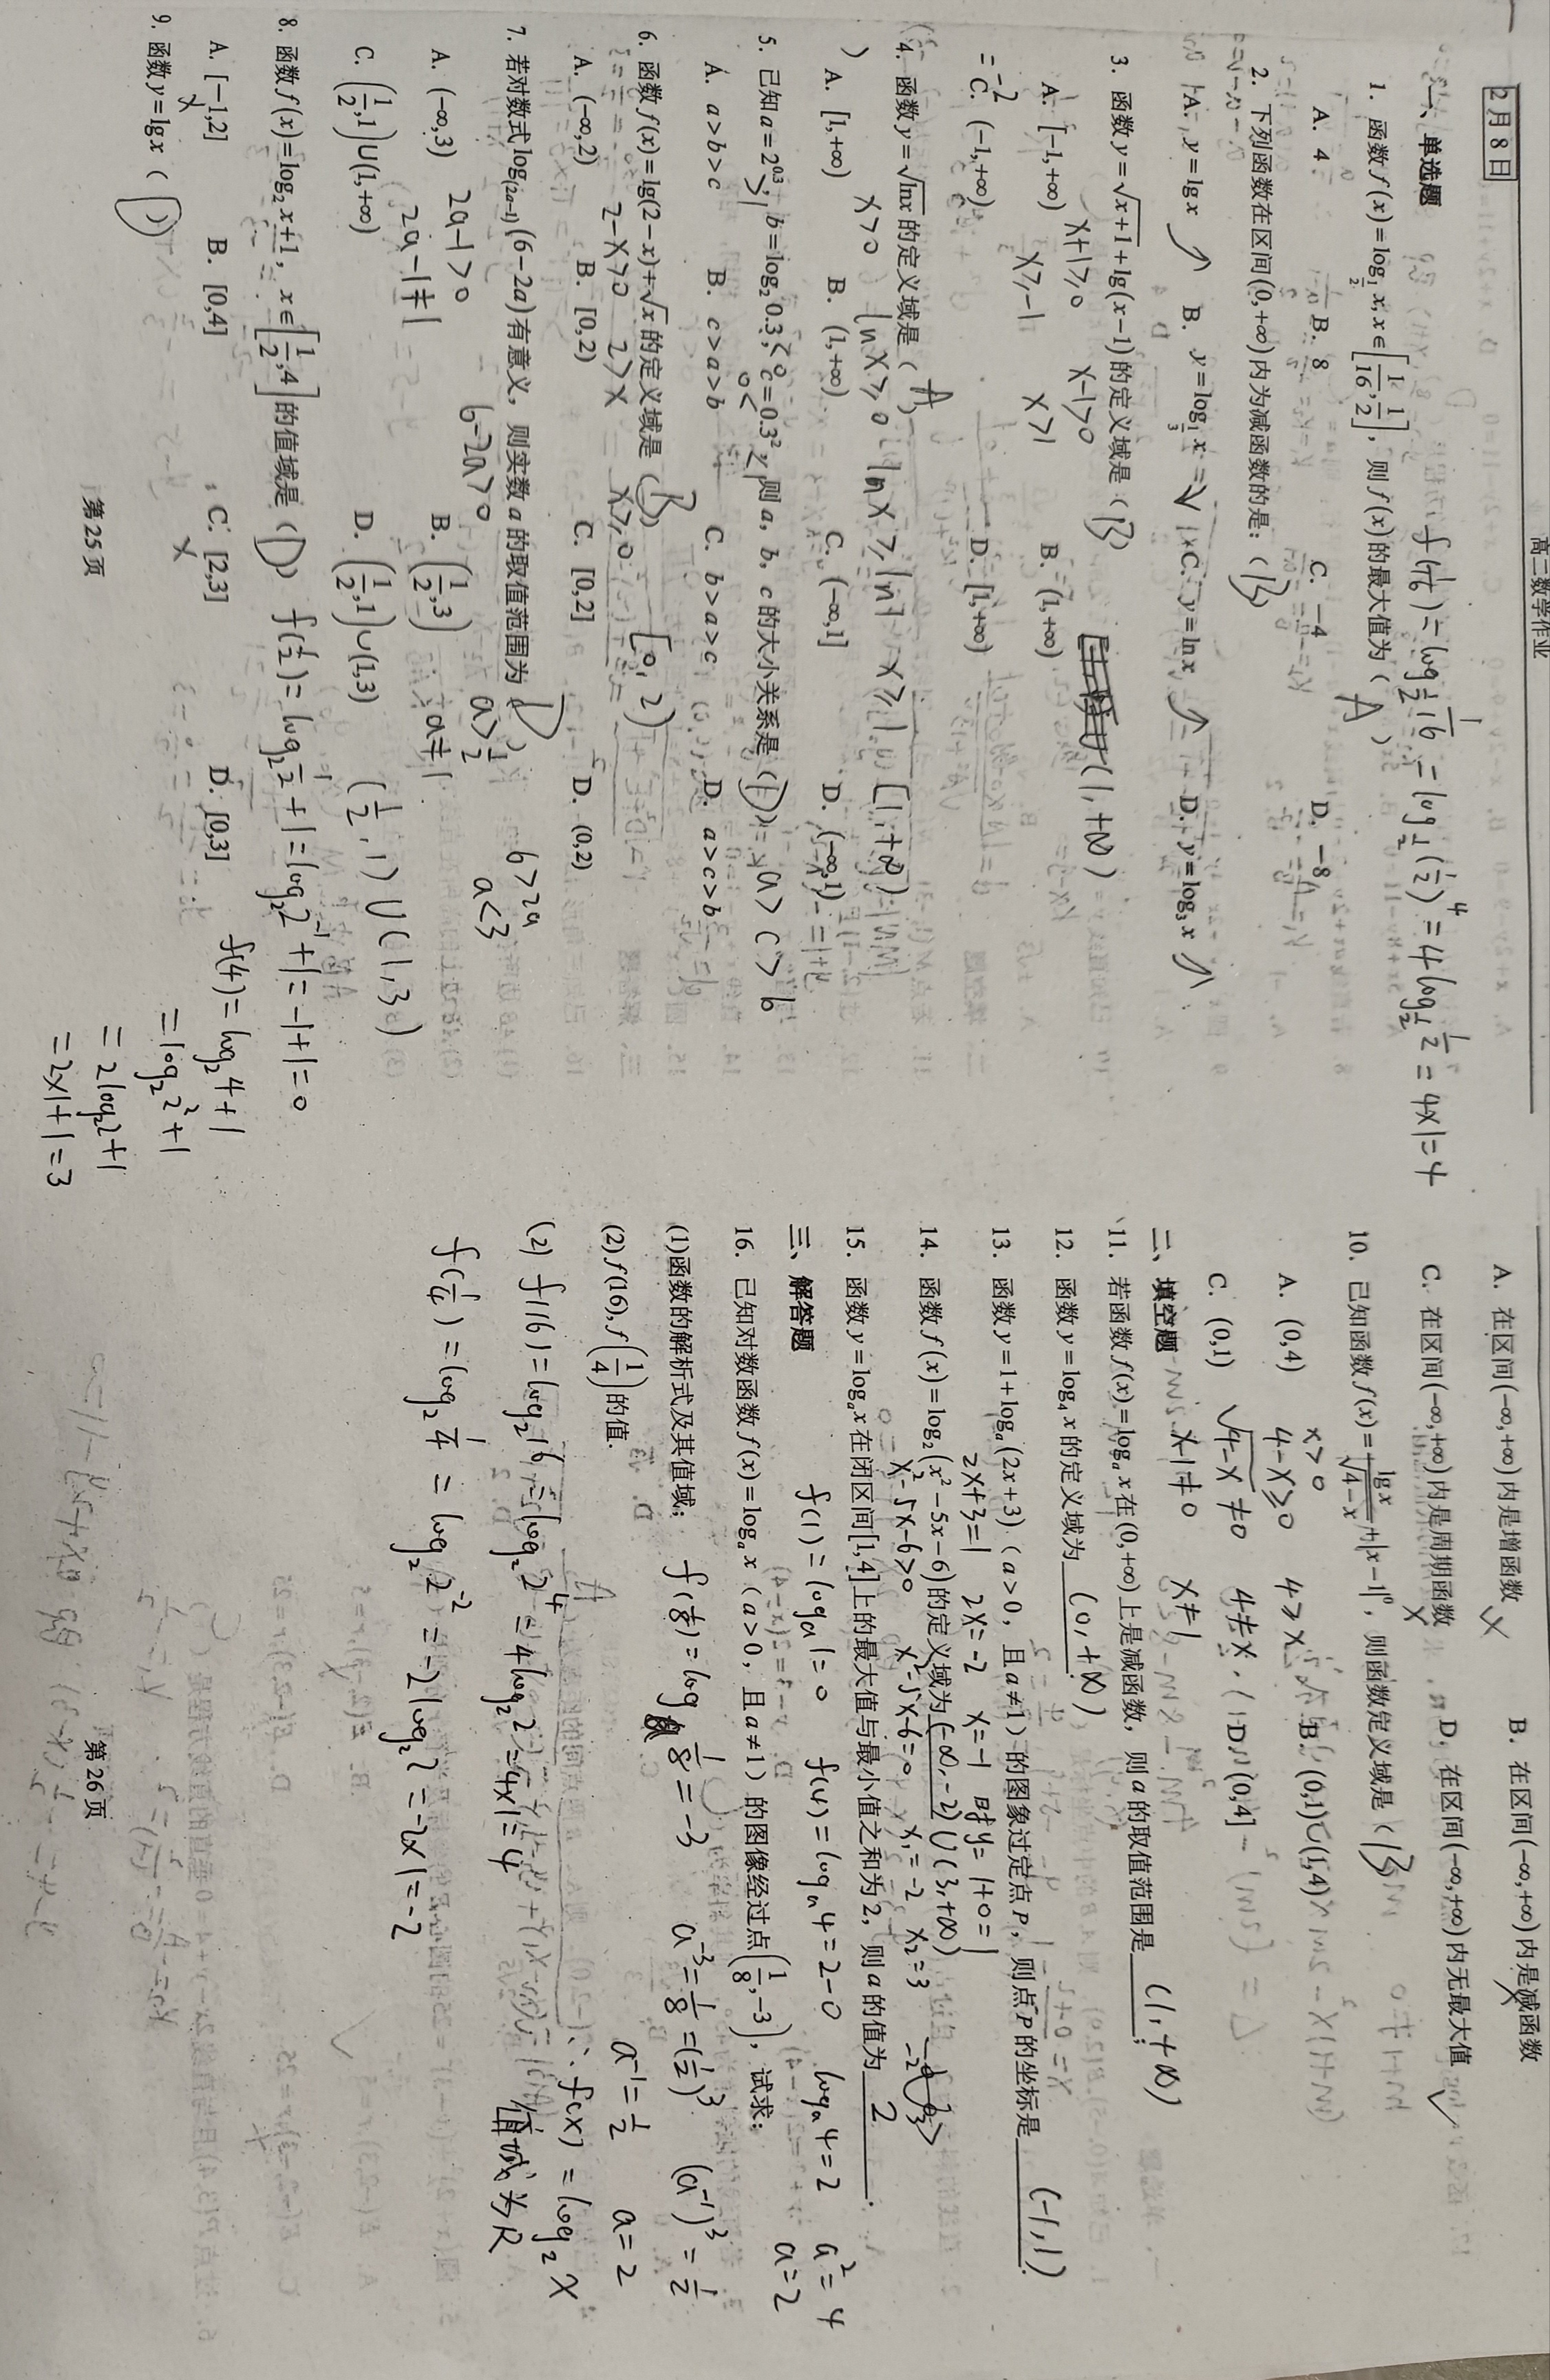 高二数学作业
2月8日
一、单选题
f(1/16)=log_{1/2} 1/16 = log_{1/2}(1/2)^4 = 4log_{1/2} 1/2 = 4×1=4
1. 函数f(x)=log_{1/2}x, x∈[1/16, 1/2], 则f(x)的最大值为( A )
A. 4 B. 8 C. -4 D. -8
2. 下列函数在区间(0,+∞)内为减函数的是：( B )
A. y=lgx ↗ B. y=log_{1/3}x ↘ C. y=lnx ↗ D. y=log_3x ↗
3. 函数y=√(x+1)+lg(x-1)的定义域是( B ) (1,+∞)
x+1≥0 x-1>0
A. [-1,+∞) B. (1,+∞)
x≥-1 x>1
C. (-1,+∞) D. [1,+∞)
4. 函数y=√(lnx)的定义域是( A
)
x>0 lnx≥0 lnx≥ln1 x≥1 [1,+∞)
A. [1,+∞) B. (1,+∞) C. (-∞,1] D. (-∞,1)
5. 已知a=2^{0.3}, b=log_2 0.3, c=0.3^2, 则a, b, c的大小关系是( D ) a>c>b
>1 <0 0< <1
A. a>b>c B. c>a>b C. b>a>c D. a>c>b
6. 函数f(x)=lg(2-x)+√x的定义域是( B )
2-x>0 2>x x≥0 [0,2)
A. (-∞,2) B. [0,2) C. [0,2] D. (0,2)
7. 若对数式log_{(2a-1)}(6-2a)有意义，则实数a的取值范围为( D )
2a-1>0 6-2a>0 a>1/2 6>2a
A. (-∞,3) B. (1/2,3)
2a-1≠1 a≠1 a<3
C. (1/2,1)∪(1,+∞) D. (1/2,1)∪(1,3) (1/2,1)∪(1,3)
8. 函数f(x)=log_2x+1, x∈[1/2,4]的值域是( D ) f(1/2)=log_2 1/2+1=log_2 2^{-1}+1=-1+1=0
A. [-1,2] B. [0,4] C. [2,3] D. [0,3] f(4)=log_2 4+1
× ×
=log_2 2^2+1
=2log_2 2+1
=2×1+1=3
9. 函数y=lgx( D )
第25页
A. 在区间(-∞,+∞)内是增函数 × B. 在区间(-∞,+∞)内是减函数 ×
C. 在区间(-∞,+∞)内是周期函数 × D. 在区间(-∞,+∞)内无最大值 √
10. 已知函数f(x)=lgx/√(4-x)+|x-1|^0, 则函数定义域是( B )
x>0
4-x≥0 4≥x
A. (0,4) B. (0,1)∪(1,4)
√(4-x)≠0 4≠x
C. (0,1) D. (0,4]
x-1≠0 x≠1
二、填空题
11. 若函数f(x)=log_a x在(0,+∞)上是减函数，则a的取值范围是 (1,+∞).
12. 函数y=log_4x的定义域为 (0,+∞).
13. 函数y=1+log_a(2x+3)（a>0，且a≠1）的图象过定点P，则点P的坐标是 (-1,1).
2x+3=1 2x=-2 x=-1 时y=1+0=1
14. 函数f(x)=log_2(x²-5x-6)的定义域为 (-∞,-2)∪(3,+∞)
x²-5x-6>0 x²-5x-6=0 x₁=-2 x₂=3 -2 3
15. 函数y=log_a x在闭区间[1,4]上的最大值与最小值之和为2，则a的值为 2.
f(1)=log_a1=0 f(4)=log_a4=2-0 log_a4=2 a²=4
a=2
三、解答题
16. 已知对数函数f(x)=log_a x（a>0，且a≠1）的图像经过点(1/8,-3)，试求：
(1)函数的解析式及其值域； f(1/8)=log_a 1/8=-3 a^{-3}=1/8=(1/2)^3 (a^{-1})^3=1/2
a^{-1}=1/2 a=2
(2)f(16),f(1/4)的值.
∴f(x)=log_2x
值域为R
(2) f(16)=log_2 16=log_2 2^4=4log_2 2=4×1=4
f(1/4)=log_2 1/4=log_2 2^{-2}=-2log_2 2=-2×1=-2
第26页